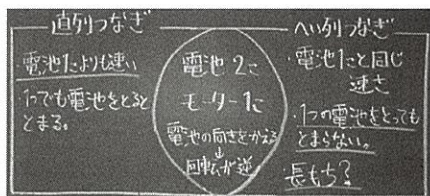 直列つなぎ
電池1こよりも速い
1つでも電池をとると
とまる。
電池2こ
モーター1こ
電池の向きをかえる
↓
回転が逆
へい列つなぎ
・電池1こと同じ
速さ
・1つの電池をとっても
とまらない。
長もち?